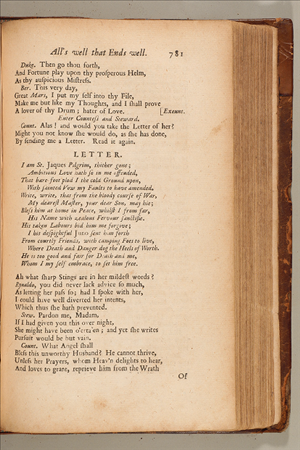 All's well that Ends well. 781
Duke. Then go thou forth,
And Fortune play upon thy prosperous Helm,
As thy auspicious Mistress.
Ber. This very day,
Great Mars, I put my self into thy File,
Make me but like my Thoughts, and I shall prove
A lover of thy Drum; hater of Love. [Exeunt.
Enter Countess and Steward.
Count. Alas! and would you take the Letter of her?
Might you not know she would do, as she has done,
By sending me a Letter. Read it again.
LETTER.
I am St. Jaques Pilgrim, thither gone;
Ambitious Love hath so in me offended,
That bare-foot plod I the cold Ground upon,
With sainted Vow my Faults to have amended.
Write, write, that from the bloody course of War,
My dearest Master, your dear Son, may hie;
Bless him at home in Peace, whilst I from far,
His Name with zealous Fervour sanctifie.
His taken Labours bid him me forgive;
I his despightful Juno sent him forth
From courtly Friends, with camping Foes to live,
Where Death and Danger dog the Heels of Worth.
He is too good and fair for Death and me,
Whom I my self embrace, to set him free.
Ah what sharp Stings are in her mildest words!
Rynaldo, you did never lack advice so much,
As letting her pass so; had I spoke with her,
I could have well diverted her intents,
Which thus she hath prevented.
Stew. Pardon me, Madam,
If I had given you this over night,
She might have been o'erta'en; and yet she writes
Pursuit would be but vain.
Count. What Angel shall
Bless this unworthy Husband? He cannot thrive,
Unless her Prayers, whom Heav'n delights to hear,
And loves to grant, reprieve him from the Wrath
Of